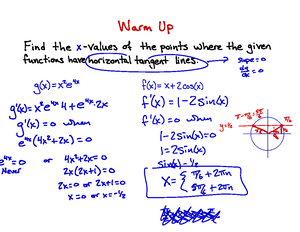 Warm Up
Find the x-values of the points where the given
functions have horizontal tangent lines.
slope = 0
dy/dx = 0
g(x) = x²e^4x
g'(x) = x²e^4x·4 + e^4x·2x
g'(x) = 0 when
e^4x(4x²+2x) = 0
e^4x = 0 or 4x²+2x = 0
Never 2x(2x+1) = 0
2x = 0 or 2x+1 = 0
x = 0 or x = -1/2
f(x) = x + 2cos(x)
f'(x) = 1 - 2sin(x)
f'(x) = 0 when
1 - 2sin(x) = 0
1 = 2sin(x)
sin(x) = 1/2
X = { π/6 + 2πn
5π/6 + 2πn
π - π/6 = 5π/6
y = 1/2
π/6